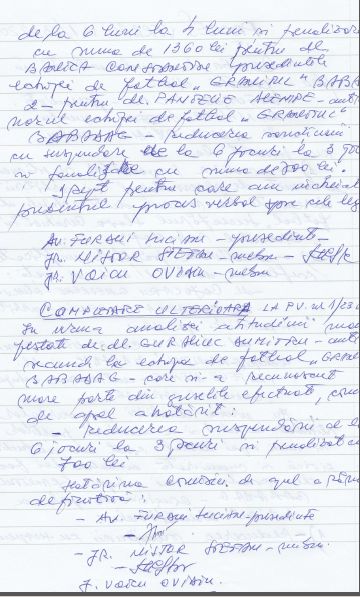 de la 6 luni la 4 luni si penalizare
cu suma de 1360 lei pentru dl.
BANICA CONSTANTIN presedintele
echipei de fotbal "GRANITUL" BABA
2 - pentru dl. PANTELIE - antre
norul echipei de fotbal "GRANITUL"
BABADAG - reducerea sanctiunii
cu suspendare de la 6 jocuri la 3 joc
si penalizare cu suma de 700 lei.
Drept pentru care am incheiat
prezentul proces verbal spre cele leg
Av. FURANI Lucian - presedinte -
Jr. NISTOR STEFAN - membru -
Jr. VOICU OVIDIU - membru
COMPLETARE ULTERIOARA LA P.V. nr 1/23
In urma analizei atitudinii mani
festate de dl. DUMITRU - antre
la echipa de fotbal "GRANI
BABADAG - care si-a recunoscut
mare parte din greselile efectuate, com
de apel a hotărît:
- reducerea suspendării de la
6 jocuri la 3 jocuri si penalizat cu
700 lei
Hotărîrea comisiei de apel a rămas
definitivă:
- Av. FURANI Lucian - presedinte
- Jr. NISTOR STEFAN - membru.
Jr. VOICU OVIDIU.